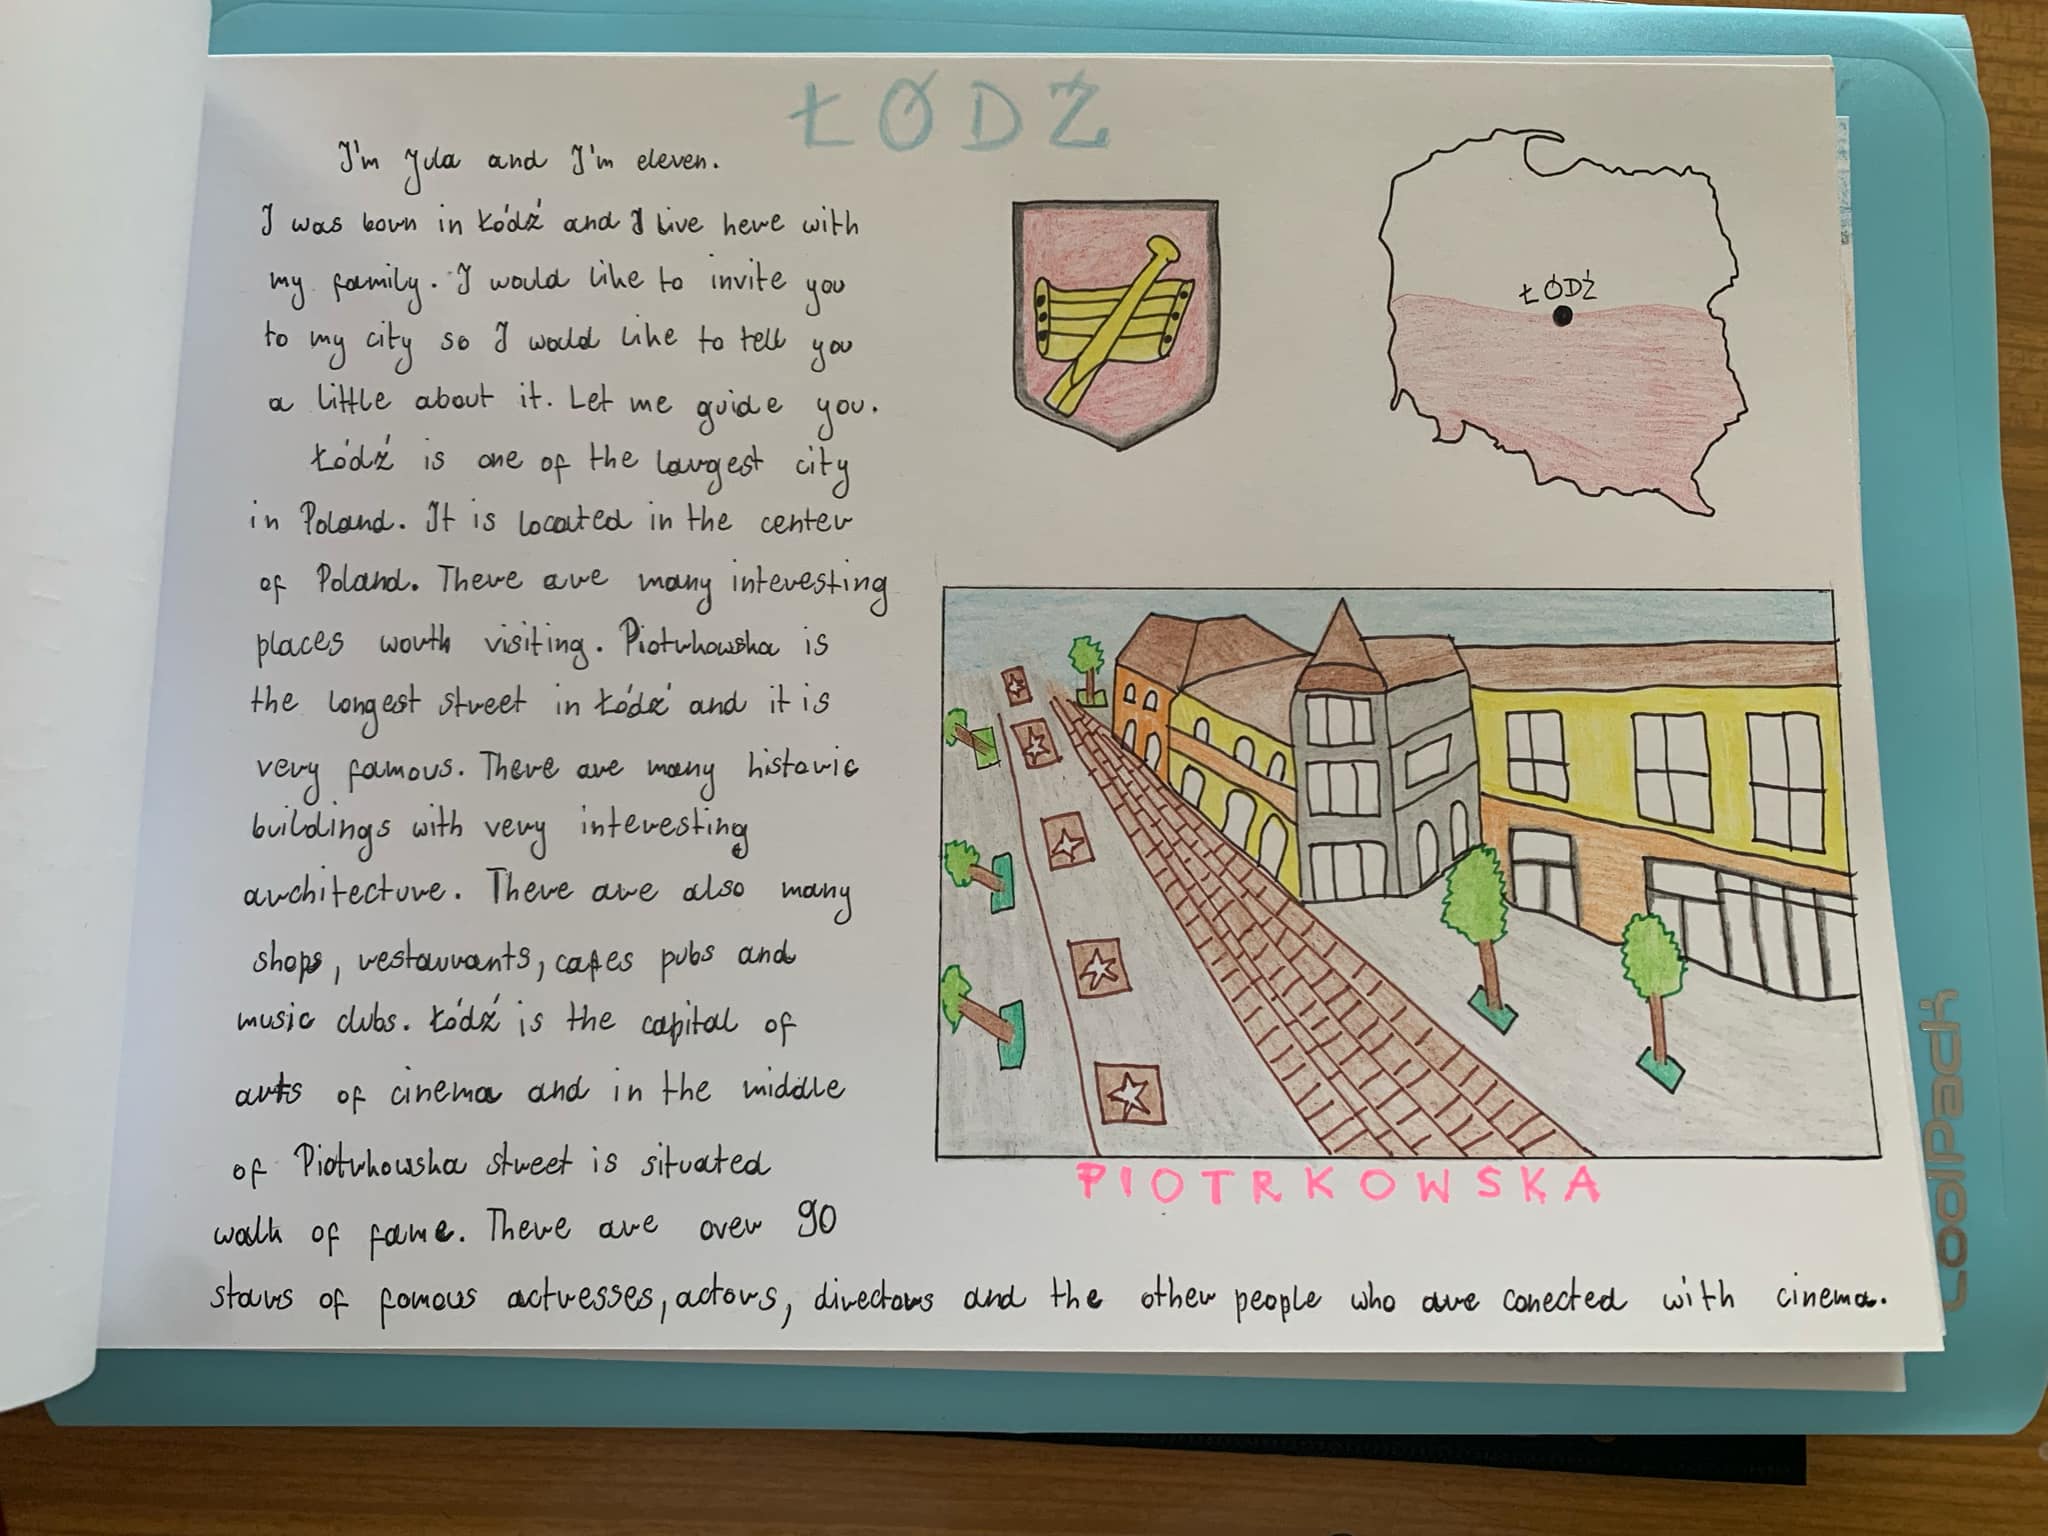 ŁÓDŹ
I'm Jula and I'm eleven.
I was born in Łódź and I live here with
my family. I would like to invite you
to my city so I would like to tell you
a little about it. Let me guide you.
Łódź is one of the largest city
in Poland. It is located in the center
of Poland. There are many interesting
places worth visiting. Piotrkowska is
the longest street in Łódź and it is
very famous. There are many historic
buildings with very interesting
architecture. There are also many
shops, restaurants, cafes pubs and
music clubs. Łódź is the capital of
arts of cinema and in the middle
of Piotrkowska street is situated
walk of fame. There are over 90
stars of famous actresses, actors, directors and the other people who are conected with cinema.
ŁÓDŹ
PIOTRKOWSKA
coolpack